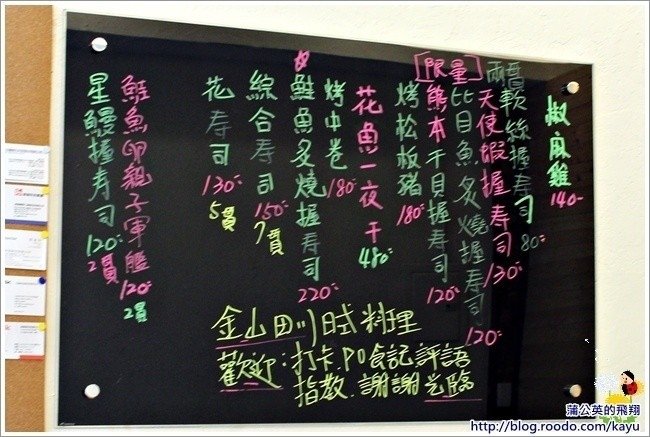 椒麻雞 140-
軟絲握壽司 80-
天使蝦握壽司 130-
比目魚炙燒握壽司 120-
[限量]
熊本干貝握壽司 120-
烤松板豬 180-
花魚一夜干 480-
烤中卷 180-
鮭魚炙燒握壽司 220-
綜合壽司 150- 7貫
花壽司 130- 5貫
鮭魚卵親子軍艦 120- 2貫
星鰻握壽司 120- 2貫
金山田川日式料理
歡迎:打卡.PO食記評語
指教.謝謝光臨
蒲公英的飛翔
http://blog.roodo.com/kayu